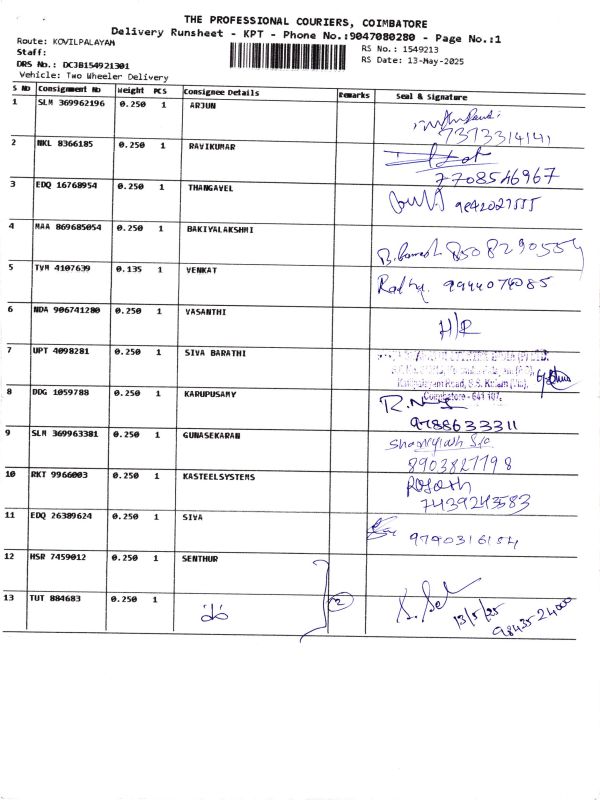 THE PROFESSIONAL COURIERS, COIMBATORE
Delivery Runsheet - KPT - Phone No.:9047080280 - Page No.:1
Route: KOVILPALAYAM
RS No.: 1549213
Staff:
RS Date: 13-May-2025
DRS No.: DCJB154921301
Vehicle: Two Wheeler Delivery
S No Consignment No Weight PCS Consignee Details Remarks Seal & Signature
1 SLM 369962196 0.250 1 ARJUN
7373314141
2 NKL 8366185 0.250 1 RAVIKUMAR
7708546967
3 EDQ 16768954 0.250 1 THANGAVEL
4 MAA 869685054 0.250 1 BAKIYALAKSHMI
8508290554
5 TVM 4107639 0.135 1 VENKAT
6 NDA 906741280 0.250 1 VASANTHI
H/R
7 UPT 4098281 0.250 1 SIVA BARATHI
Coimbatore - 641 107.
8 DDG 1059788 0.250 1 KARUPUSAMY
9788633311
9 SLM 369963381 0.250 1 GUNASEKARAN
8903827798
10 RKT 9966003 0.250 1 KASTEELSYSTEMS
7439243583
11 EDQ 26389624 0.250 1 SIVA
9790316184
12 HSR 7459012 0.250 1 SENTHUR
13 TUT 884683 0.250 1
2
13/5/25
9843524000